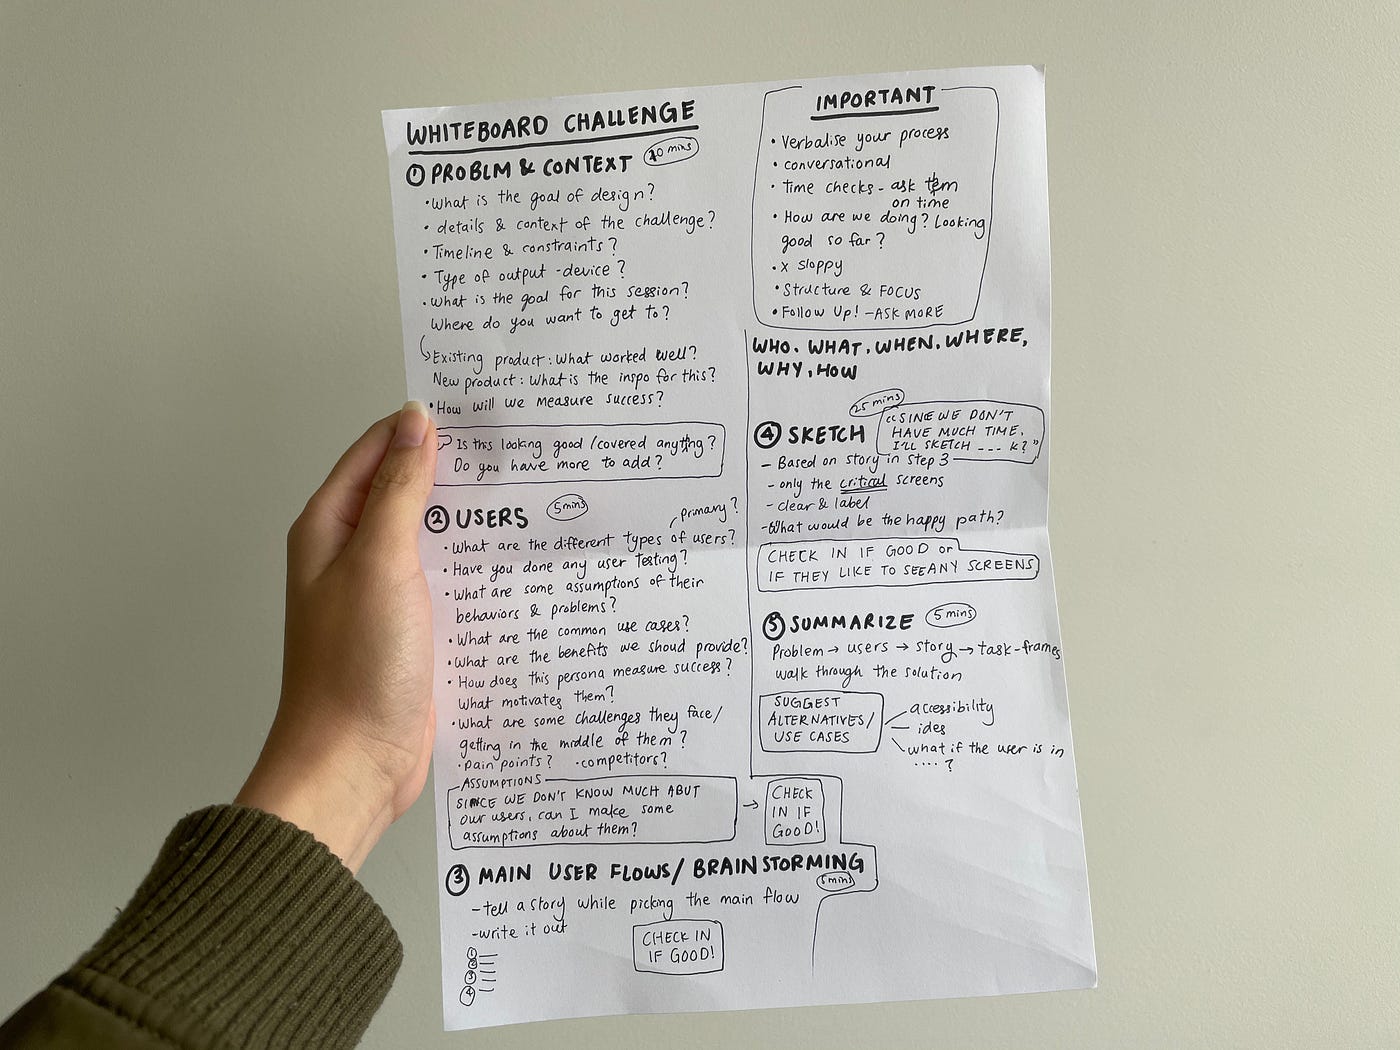 WHITEBOARD CHALLENGE
① PROBLM & CONTEXT
10 mins
• What is the goal of design?
• details & context of the challenge?
• Timeline & constraints?
• Type of output - device?
• What is the goal for this session?
Where do you want to get to?
Existing product: What worked well?
New product: What is the inspo for this?
• How will we measure success?
Is this looking good / covered anything?
Do you have more to add?
② USERS
5 mins
primary?
• What are the different types of users?
• Have you done any user testing?
• What are some assumptions of their
behaviors & problems?
• What are the common use cases?
• What are the benefits we shoud provide?
• How does this persona measure success?
What motivates them?
• What are some challenges they face/
getting in the middle of them?
• pain points? • competitors?
ASSUMPTIONS
SINCE WE DON'T KNOW MUCH ABUT
our users, can I make some
assumptions about them?
→ CHECK
IN IF
GOOD!
③ MAIN USER FLOWS/ BRAINSTORMING
5 mins
- tell a story while picking the main flow
- write it out
CHECK IN
IF GOOD!
①
②
③
④
IMPORTANT
• Verbalise your process
• conversational
• Time checks - ask them
on time
• How are we doing? Looking
good so far?
• x sloppy
• Structure & FOCUS
• Follow Up! - ASK MORE
WHO. WHAT. WHEN. WHERE,
WHY, HOW
25 mins
④ SKETCH
"SINE WE DON'T
HAVE MUCH TIME.
I'LL SKETCH _ _ _ K?"
- Based on story in Step 3
- only the critical screens
- clear & label
- What would be the happy path?
CHECK IN IF GOOD or
IF THEY LIKE TO SEE ANY SCREENS
⑤ SUMMARIZE
5 mins
Problem → users → story → task-frames
walk through the solution
SUGGEST
ALTERNATIVES/
USE CASES
accessibility
ides
what if the user is in
....?